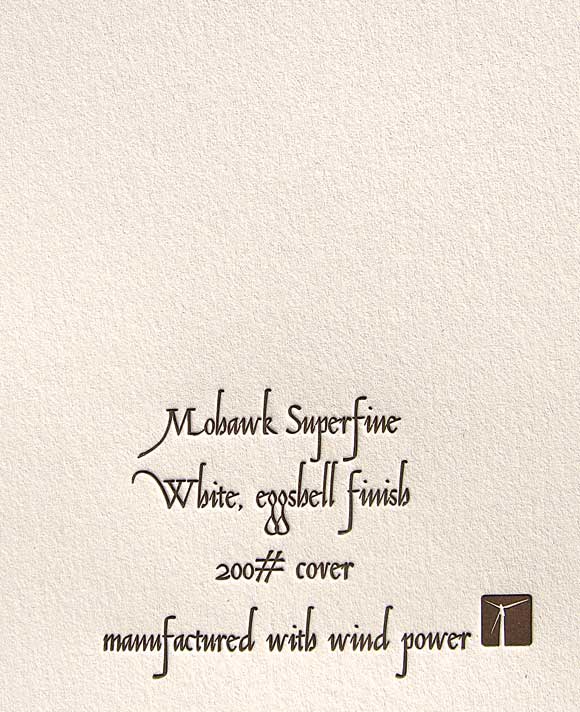 Mohawk Superfine
White, eggshell finish
200# cover
manufactured with wind power